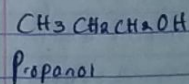 CH3 CH2CH2OH
Propanol